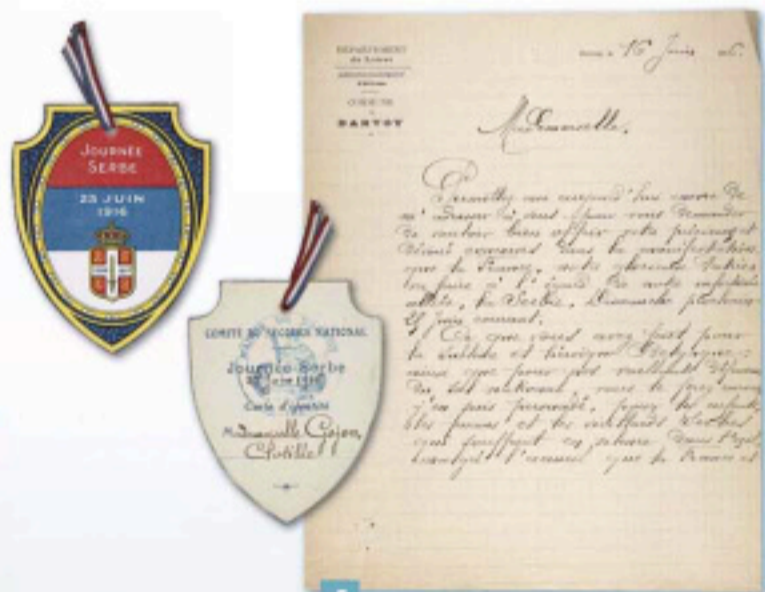 JOURNÉE
SERBE
25 JUIN
1916
COMITÉ DU SECOURS NATIONAL
Journée Serbe
25 Juin 1916
Carte d'identité
Mademoiselle Gojon
Clotilde
DÉPARTEMENT
du Loiret
ARRONDISSEMENT
COMMUNE
DARVOY
le 16 Juin
Mademoiselle,
Permettez moi aujourd'hui encore de
m'adresser à vous pour vous demander
de vouloir bien offrir votre précieux et
dévoué concours dans la manifestation
que la France, notre glorieuse Patrie
va faire à l'égard de notre
alliée, la Serbie, Dimanche prochain
25 Juin courant.
Ce que vous avez fait pour
la sublime et héroïque Belgique,
ainsi que pour nos vaillants
du sol national, vous le ferez encore
j'en suis persuadé, pour les enfants
les femmes et les vieillards Serbes
qui souffrent en silence dans l'exil
que la France et